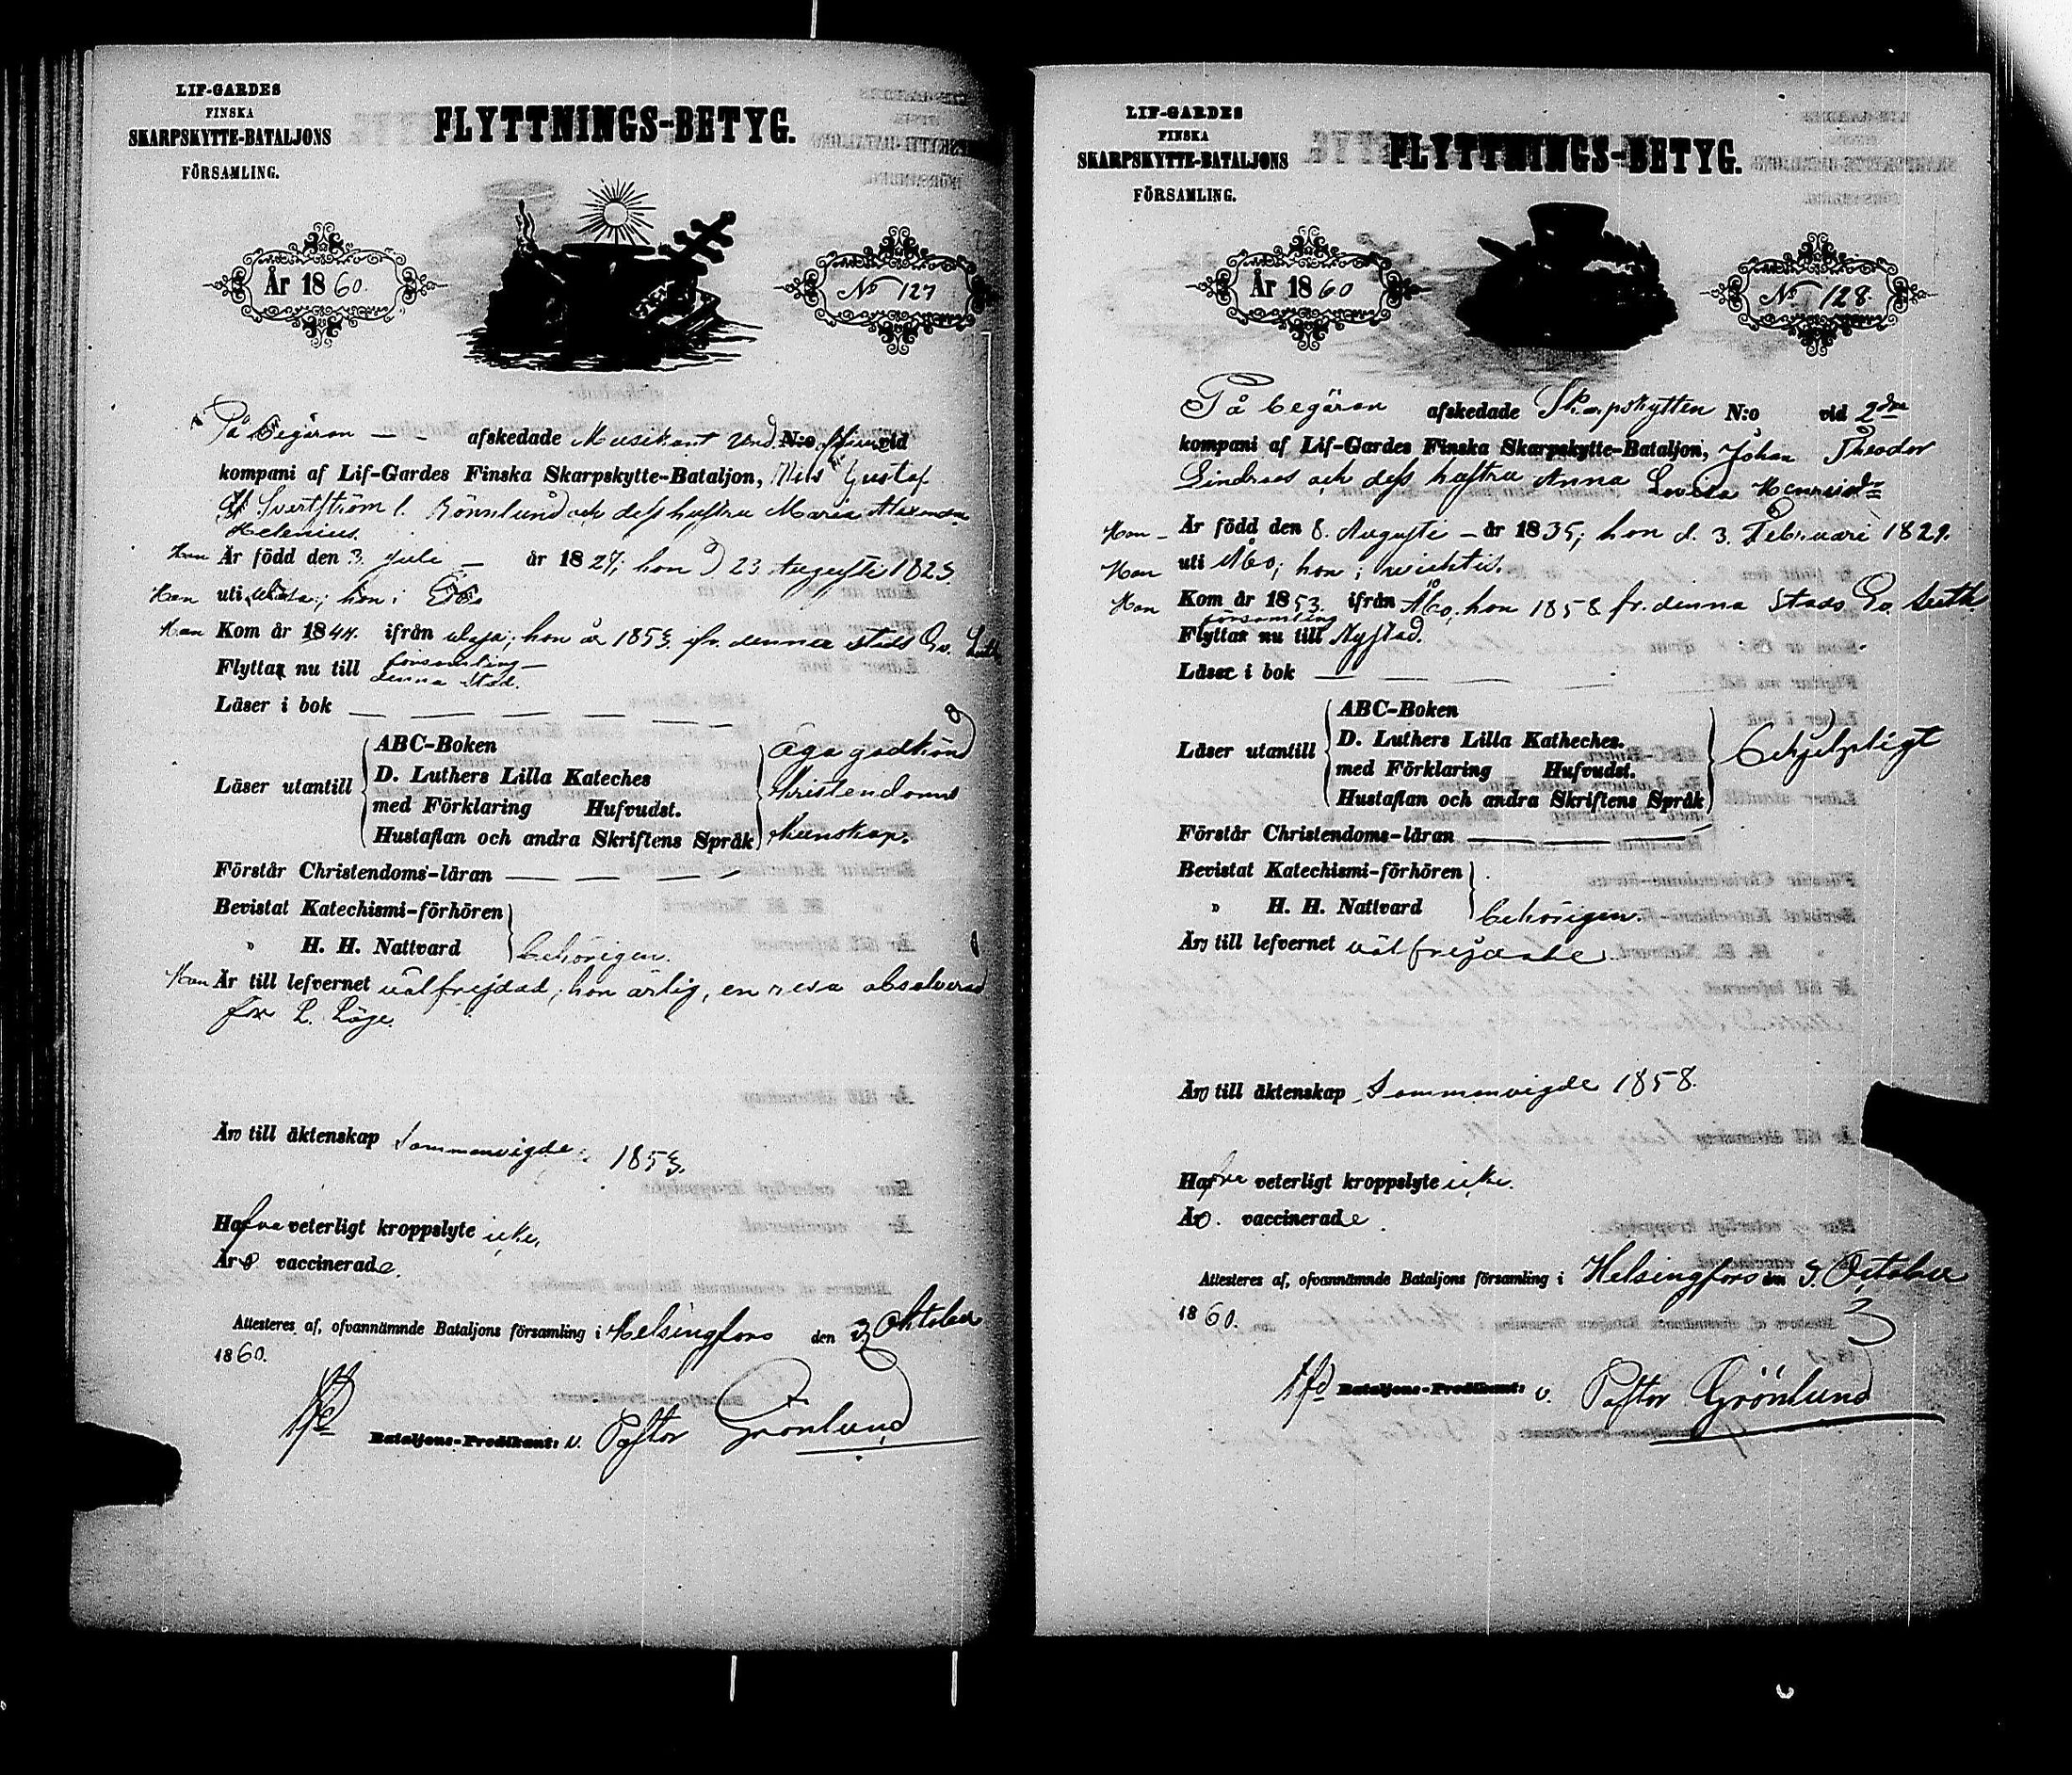 LIF-GARDES
FINSKA
SKARPSKYTTE-BATALJONS
FÖRSAMLING.
FLYTTNINGS-BETYG.
År 1860.
No 127
På begäran — — afskedade Musikant N:o vid
kompani af Lif-Gardes Finska Skarpskytte-Bataljon, Nils Gustaf
Rönnlund och dess hustru Maria
Helenius.
Han Är född den 3. Juli — år 1827; hon d 23 Augusti 1823.
Han uti hon i
Han Kom år 1844. ifrån hon år 1853. fr. denna stads Ev. Luth
Flyttar nu till församling —
denna stad.
Läser i bok — — — — —
Läser utantill
ABC-Boken
D. Luthers Lilla Kateches
med Förklaring Hufvudst.
Hustaflan och andra Skriftens Språk
äga godkänd
Christendoms
kunskap.
Förstår Christendoms-läran — — — —
Bevistat Katechismi-förhören
" H. H. Nattvard
behörigen.
Han Är till lefvernet välfrejdad; hon ärlig, en resa absolverad
för L. Läge.
Äro till äktenskap Sammanvigde 1853.
Hafva veterligt kroppslyte icke.
Äro vaccinerade.
Attesteras af, ofvannämnde Bataljons församling i Helsingfors den 3. Oktober
1860.
Bataljons-Predikant: v. Pastor Grönlund
LIF-GARDES
FINSKA
SKARPSKYTTE-BATALJONS
FÖRSAMLING.
FLYTTNINGS-BETYG.
År 1860
No 128.
På begäran afskedade Skarpskytten N:o vid 2dra
kompani af Lif-Gardes Finska Skarpskytte-Bataljon, Johan Theodor
Lindroos och dess hustru Anna Lovisa
Han — Är född den 8. Augusti — år 1835; hon d. 3. Februari 1829.
Han uti Åbo; hon i
Han Kom år 1853. ifrån Åbo, hon 1858 fr. denna Stads Ev. Luth.
församling
Flyttar nu till Nystad.
Läser i bok — — — — —
Läser utantill
ABC-Boken
D. Luthers Lilla Katheches.
med Förklaring Hufvudst.
Hustaflan och andra Skriftens Språk
behjelpligt
Förstår Christendoms-läran — — —
Bevistat Katechismi-förhören
" H. H. Nattvard
behörigen.
Äro till lefvernet välfrejdade.
Äro till äktenskap Sammanvigde 1858.
Hafva veterligt kroppslyte icke.
Äro. vaccinerade.
Attesteras af, ofvannämnde Bataljons församling i Helsingfors den 3. October
1860.
Bataljons-Predikant: v. Pastor Grönlund